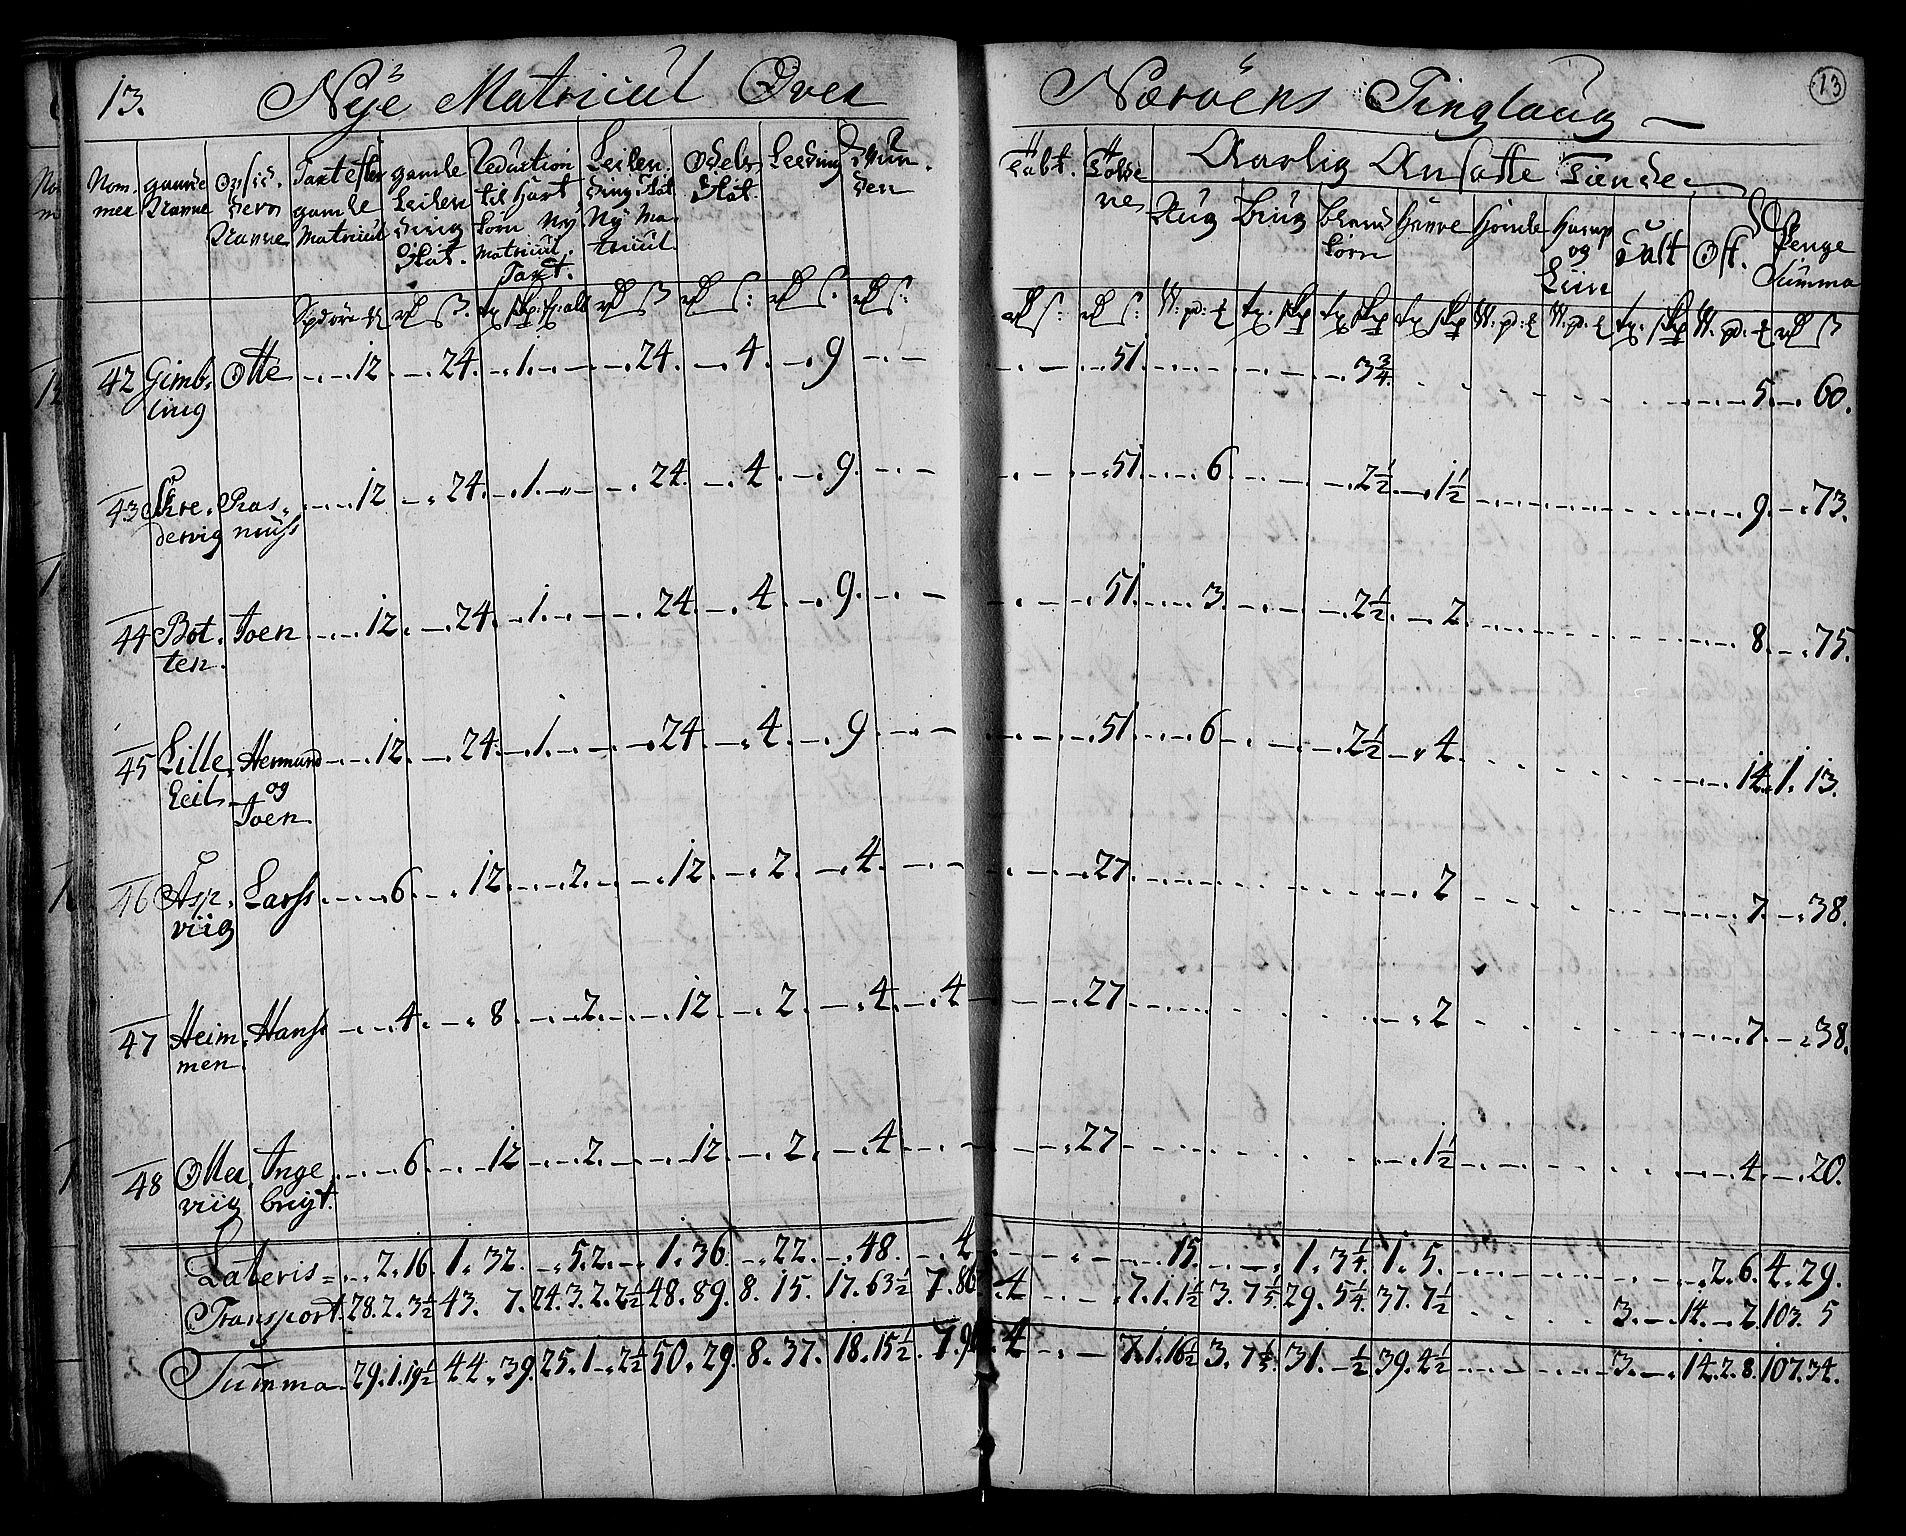 13. Nÿe Matricul Over Nærøens Tinglaug 13
Nom- gaarde Opsid- Taxt efter gamle Reduction Leilen Odels Leeding
mer Nanne dern gamle Leilen til hart Ding Skat Skat.
Nanne Matricul Ding Korn Nÿ Nÿ Ma-
Skat. Matricul tricul
Taxt.
Aarlig Ansatte Tiende
Rug Biug Bland Havre Homle Hamp Talt Ost. Penge
Korn og Liin Summa
42 Gimb- Otte 12 24. 1. 24. 4. 9 51. 3 3/4. 5. 60.
ling
43 Skre- Ras- 12 24. 1. 24. 4 9. 51. 6 2 1/2 1 1/2 9. 73.
dervig muss
44 Bot- Joen 12. 24. 1. 24. 4. 9. 51. 3. 2 1/2 2 8. 75.
ten.
45 Lille- Hermund 12. 24. 1. 24. 4. 9 51. 6 2 1/2 4. 14. 1. 13.
Eeil- og
Joen
46 Asp- Larss 6 12. 2. 12. 2 4. 27. 2 7. 38.
viig
47 Heim- Hanss 4. 8 2. 12. 2 4. 4 27. 2 7. 38.
men.
48 Otter- Inge 6 12 2. 12. 2. 4. 27 1 1/2 4. 20.
viig brigt.
Lateris 2. 16. 1. 32. 5. 2. 1. 36. 22. 48. 4. 15. 1. 3 1/4. 1. 5. 2. 6. 4. 29.
Transport. 28. 2. 3 1/2 43. 7. 24. 3. 2. 2 1/2 48. 89. 8. 15. 17. 63 1/2 7. 86 4 7. 1. 1 1/2 3. 7 1/2 29. 5 1/4. 37. 7 1/2 3. 14. 2. 103. 5
Summa 29. 1. 19 1/2 44. 39. 25. 1 2 1/2 50. 29. 8. 37. 18. 15 1/2. 7. 4 7. 1. 16 1/2 3. 7 1/2. 31. 1/2 39. 4 1/2 3. 14. 2. 8. 107. 34.